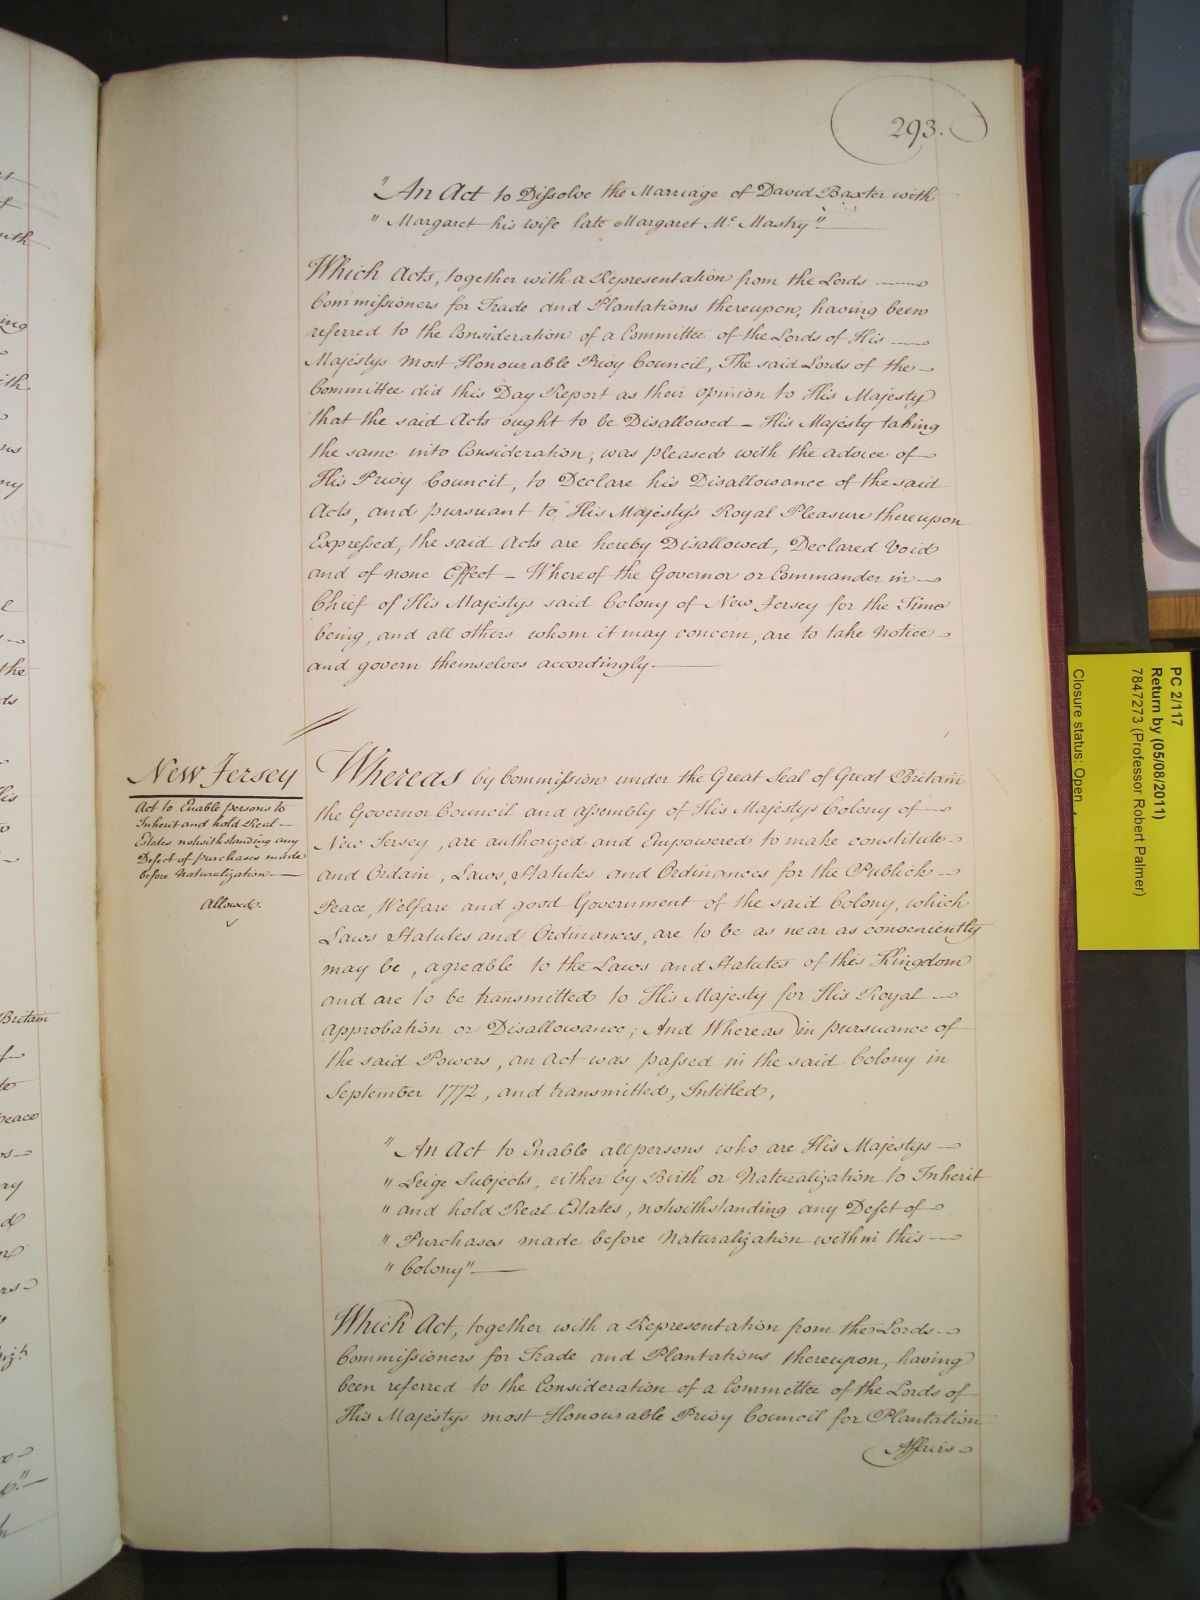 293.
"An Act to Dissolve the Marriage of David Baxter with
" Margaret his wife late Margaret Mc. Mastry"
Which Acts, together with a Representation from the Lords
Commissioners for Trade and Plantations thereupon, having been
referred to the Consideration of a Committee of the Lords of His
Majestys most Honourable Privy Council, The said Lords of the
Committee did this Day Report as their opinion to His Majesty
that the said Acts ought to be Disallowed – His Majesty taking
the same into Consideration, was pleased with the advice of
His Privy Council, to Declare his Disallowance of the said
Acts, and pursuant to His Majesty's Royal Pleasure thereupon
Expressed, the said Acts are hereby Disallowed, Declared Void
and of none Effect – Whereof the Governor or Commander in
Chief of His Majestys said Colony of New Jersey for the Time
being, and all others whom it may concern, are to take Notice
and govern themselves accordingly.
New Jersey
Act to Enable persons to
Inherit and hold Real
Estates notwithstanding any
Defect of purchases made
before Naturalization
Allowed.
Whereas by Commission under the Great Seal of Great Britain
the Governor Council and Assembly of His Majestys Colony of
New Jersey, are authorized and Empowered to make constitute
and Ordain, Laws, Statutes and Ordinances for the Publick
Peace, Welfare and good Government of the said Colony, which
Laws Statutes and Ordinances, are to be as near as conveniently
may be, agreable to the Laws and Statutes of this Kingdom
and are to be transmitted to His Majesty for His Royal
Approbation or Disallowance; And Whereas in pursuance of
the said Powers, an Act was passed in the said Colony in
September 1772, and transmitted, Intitled,
" An Act to Enable all persons who are His Majestys
" Leige Subjects, either by Birth or Naturalization to Inherit
" and hold Real Estates, notwithstanding any Defect of
" Purchases made before Naturalization within this
" Colony"
Which Act, together with a Representation from the Lords
Commissioners for Trade and Plantations thereupon, having
been referred to the Consideration of a Committee of the Lords of
His Majestys most Honourable Privy Council for Plantation
Affairs
PC 2/117
Return by (05/08/2011)
7847273 (Professor Robert Palmer)
Closure status: Open